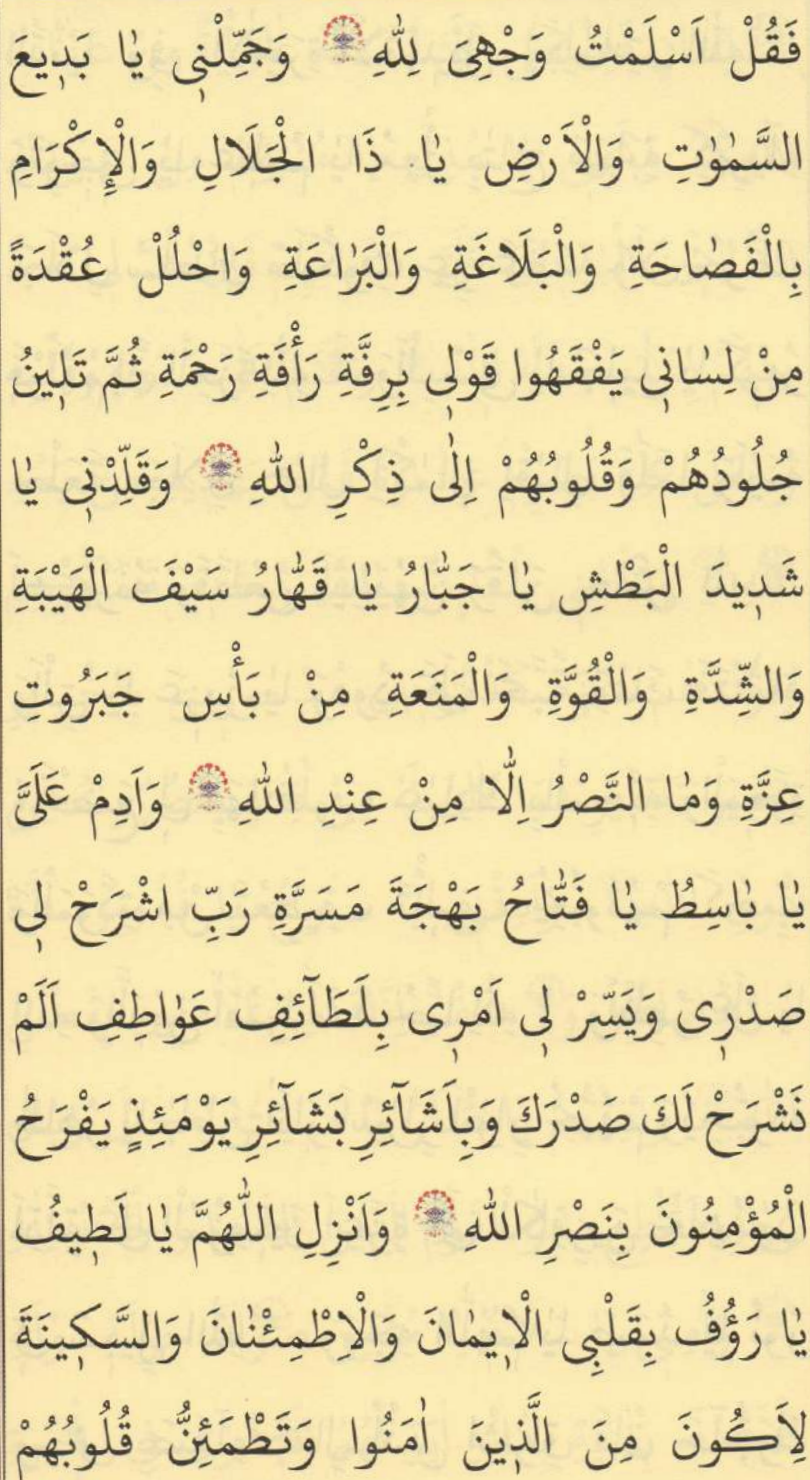 فَقُلْ اَسْلَمْتُ وَجْهِىَ لِلّٰهِ وَجَمِّلْنٖى يٰا بَدٖيعَ
السَّمٰوٰتِ وَالْاَرْضِ يٰا ذَا الْجَلَالِ وَالْاِكْرَامِ
بِالْفَصٰاحَةِ وَالْبَلَاغَةِ وَالْبَرٰاعَةِ وَاحْلُلْ عُقْدَةً
مِنْ لِسٰانٖى يَفْقَهُوا قَوْلٖى بِرِقَّةِ رَأْفَةِ رَحْمَةِ ثُمَّ تَلٖينُ
جُلُودُهُمْ وَقُلُوبُهُمْ اِلٰى ذِكْرِ اللّٰهِ وَقَلِّدْنٖى يٰا
شَدٖيدَ الْبَطْشِ يٰا جَبّٰارُ يٰا قَهّٰارُ سَيْفَ الْهَيْبَةِ
وَالشِّدَّةِ وَالْقُوَّةِ وَالْمَنَعَةِ مِنْ بَأْسِ جَبَرُوتِ
عِزَّةِ وَمٰا النَّصْرُ اِلّٰا مِنْ عِنْدِ اللّٰهِ وَاَدِمْ عَلَىَّ
يٰا بٰاسِطُ يٰا فَتّٰاحُ بَهْجَةَ مَسَرَّةِ رَبِّ اشْرَحْ لٖى
صَدْرٖى وَيَسِّرْ لٖى اَمْرٖى بِلَطَآئِفِ عَوٰاطِفِ اَلَمْ
نَشْرَحْ لَكَ صَدْرَكَ وَبِاَشَآئِرِ بَشَآئِرِ يَوْمَئِذٍ يَفْرَحُ
الْمُؤْمِنُونَ بِنَصْرِ اللّٰهِ وَاَنْزِلِ اللّٰهُمَّ يٰا لَطٖيفُ
يٰا رَؤُفُ بِقَلْبٖى الْاٖيمٰانَ وَالْاِطْمِئْنٰانَ وَالسَّكٖينَةَ
لِاَكُونَ مِنَ الَّذٖينَ اٰمَنُوا وَتَطْمَئِنُّ قُلُوبُهُمْ